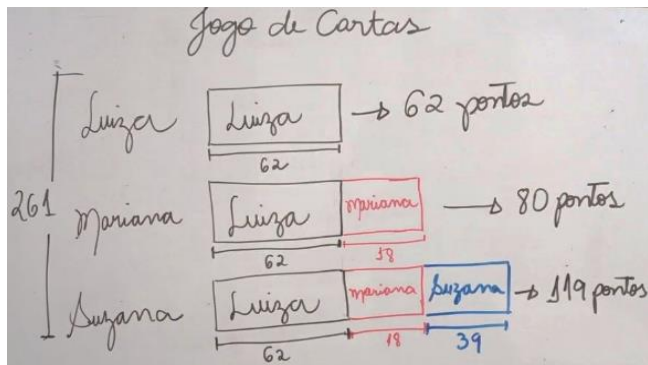 Jogo de Cartas
Luiza Luiza → 62 pontos
62
261 Mariana Luiza Mariana → 80 pontos
62 18
Suzana Luiza Mariana Suzana → 119 pontos
62 18 39